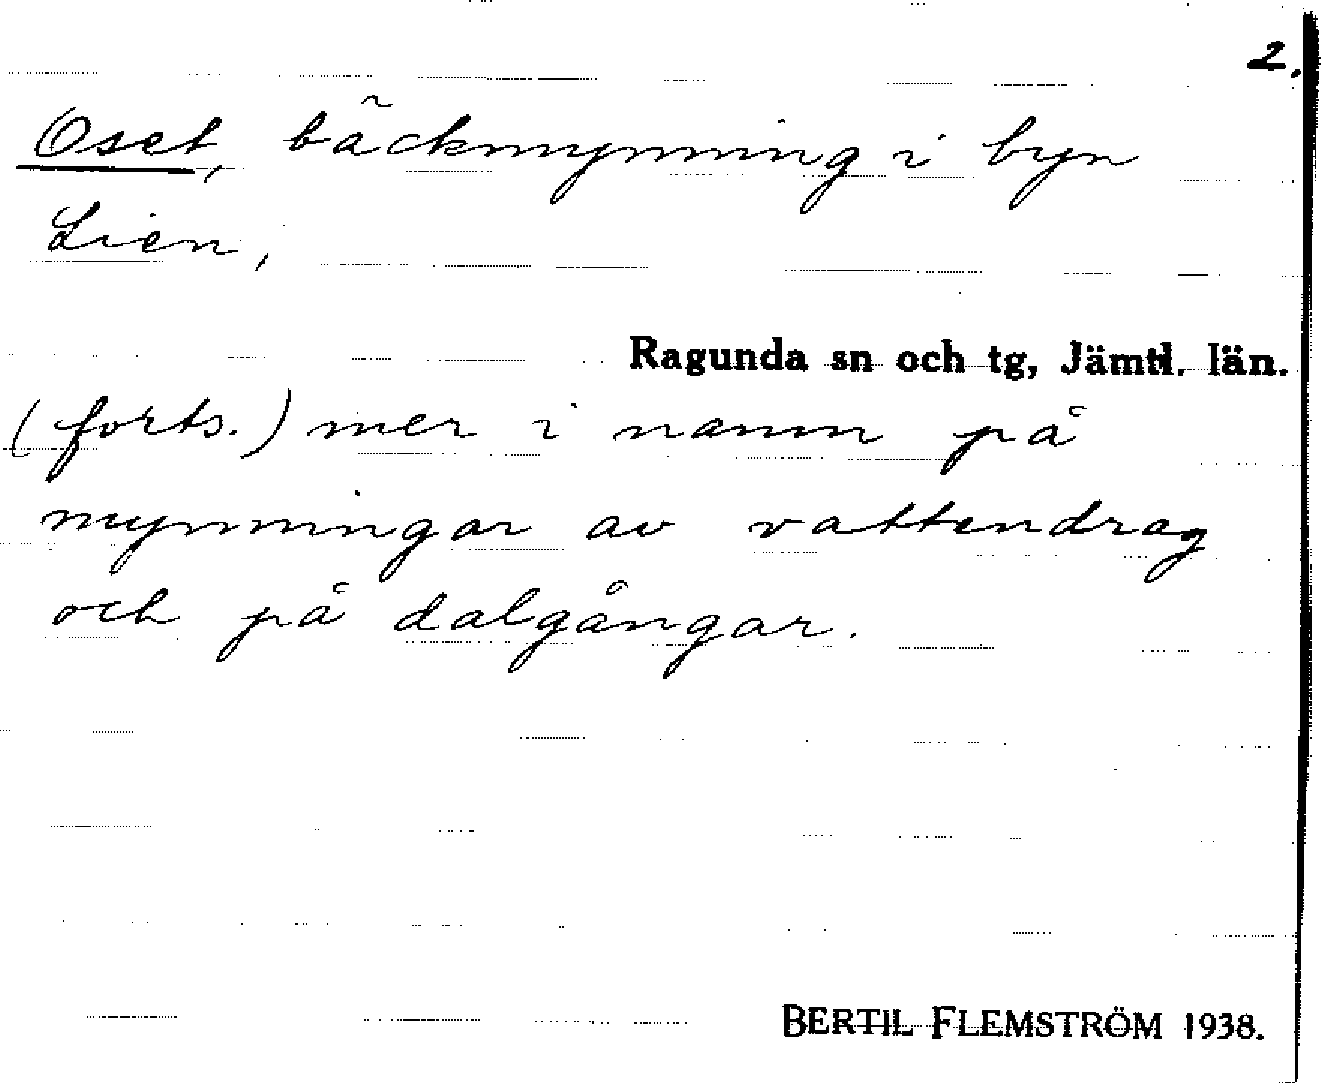 2.
Oset, bäckmynning i byn
Lien,
Ragunda sn och tg, Jämtl. län.
(forts.) mer i namn på
mynningar av vattendrag
och på dalgångar.
BERTIL FLEMSTRÖM 1938.